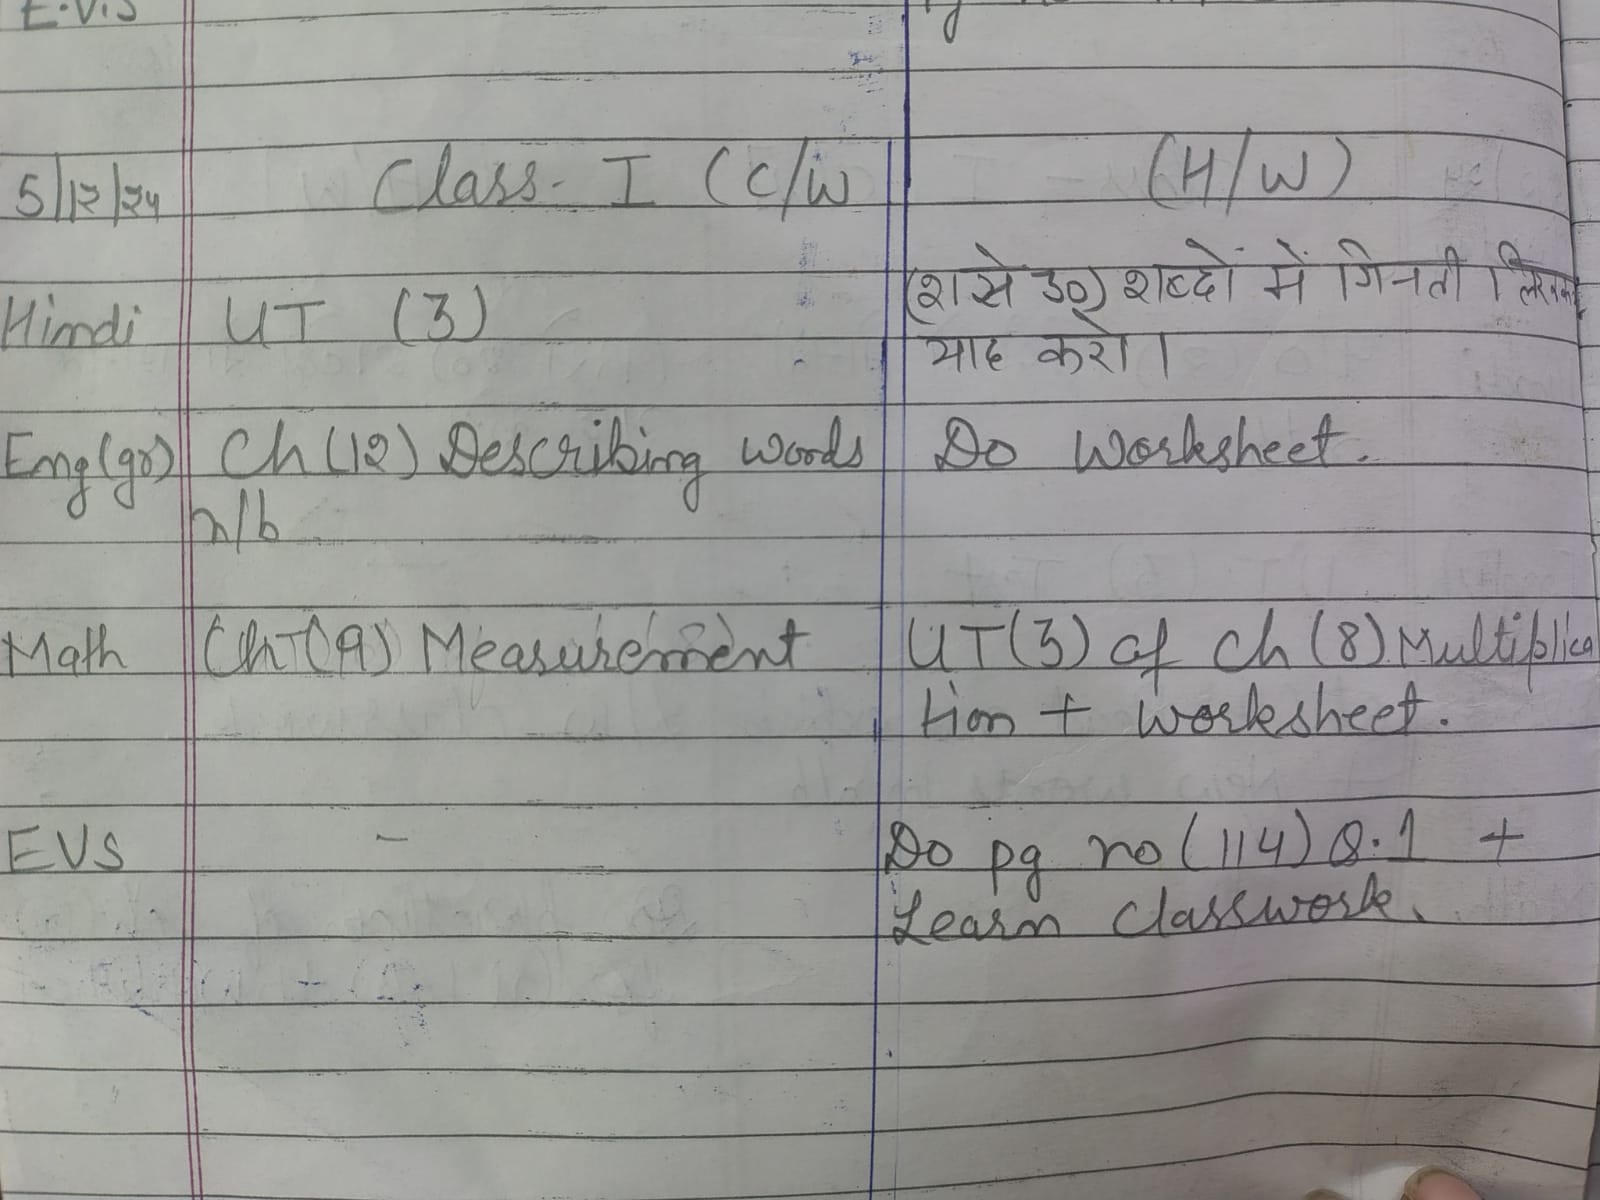 E.V.S
5/12/24 Class - I (C/W (H/W)
Hindi UT (3) से 30) शब्दों में गिनती ।
याद करो।
Eng(gr) Ch (12) Describing words Do Worksheet.
n/b
Math Ch (9) Measurement UT (3) of Ch (8) Multiplica
tion + worksheet.
EVS - Do pg no (114) Q.1 +
Learn Classwork.